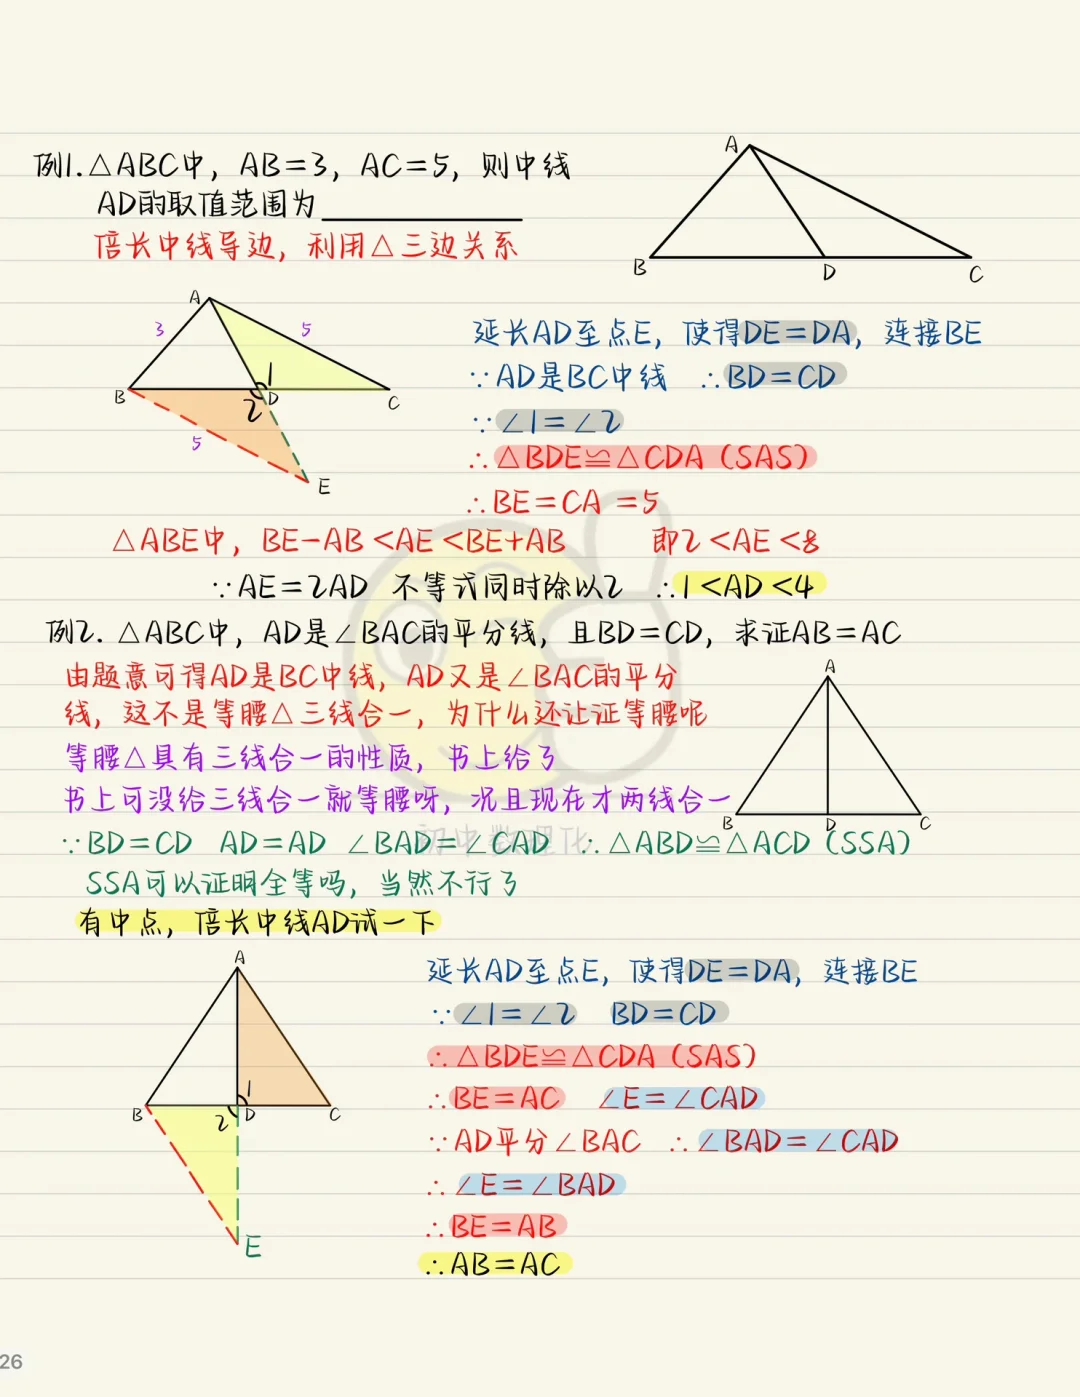 例1.△ABC中，AB=3，AC=5，则中线
AD的取值范围为
倍长中线导边，利用△三边关系
A
B
D
C
A
3
5
1
B
2
D
C
5
E
延长AD至点E，使得DE=DA，连接BE
∵AD是BC中线 ∴BD=CD
∵∠1=∠2
∴△BDE≌△CDA（SAS）
∴BE=CA=5
△ABE中，BE-AB<AE<BE+AB 即2<AE<8
∵AE=2AD 不等式同时除以2 ∴1<AD<4
例2.△ABC中，AD是∠BAC的平分线，且BD=CD，求证AB=AC
由题意可得AD是BC中线，AD又是∠BAC的平分
线，这不是等腰△三线合一，为什么还让证等腰呢
等腰△具有三线合一的性质，书上给了
书上可没给三线合一就等腰呀，况且现在才两线合一
A
B
D
C
∵BD=CD AD=AD ∠BAD=∠CAD ∴△ABD≌△ACD（SSA）
初中数理化
SSA可以证明全等吗，当然不行了
有中点，倍长中线AD试一下
A
1
B
2
D
C
E
延长AD至点E，使得DE=DA，连接BE
∵∠1=∠2 BD=CD
∴△BDE≌△CDA（SAS）
∴BE=AC ∠E=∠CAD
∵AD平分∠BAC ∴∠BAD=∠CAD
∴∠E=∠BAD
∴BE=AB
∴AB=AC
26